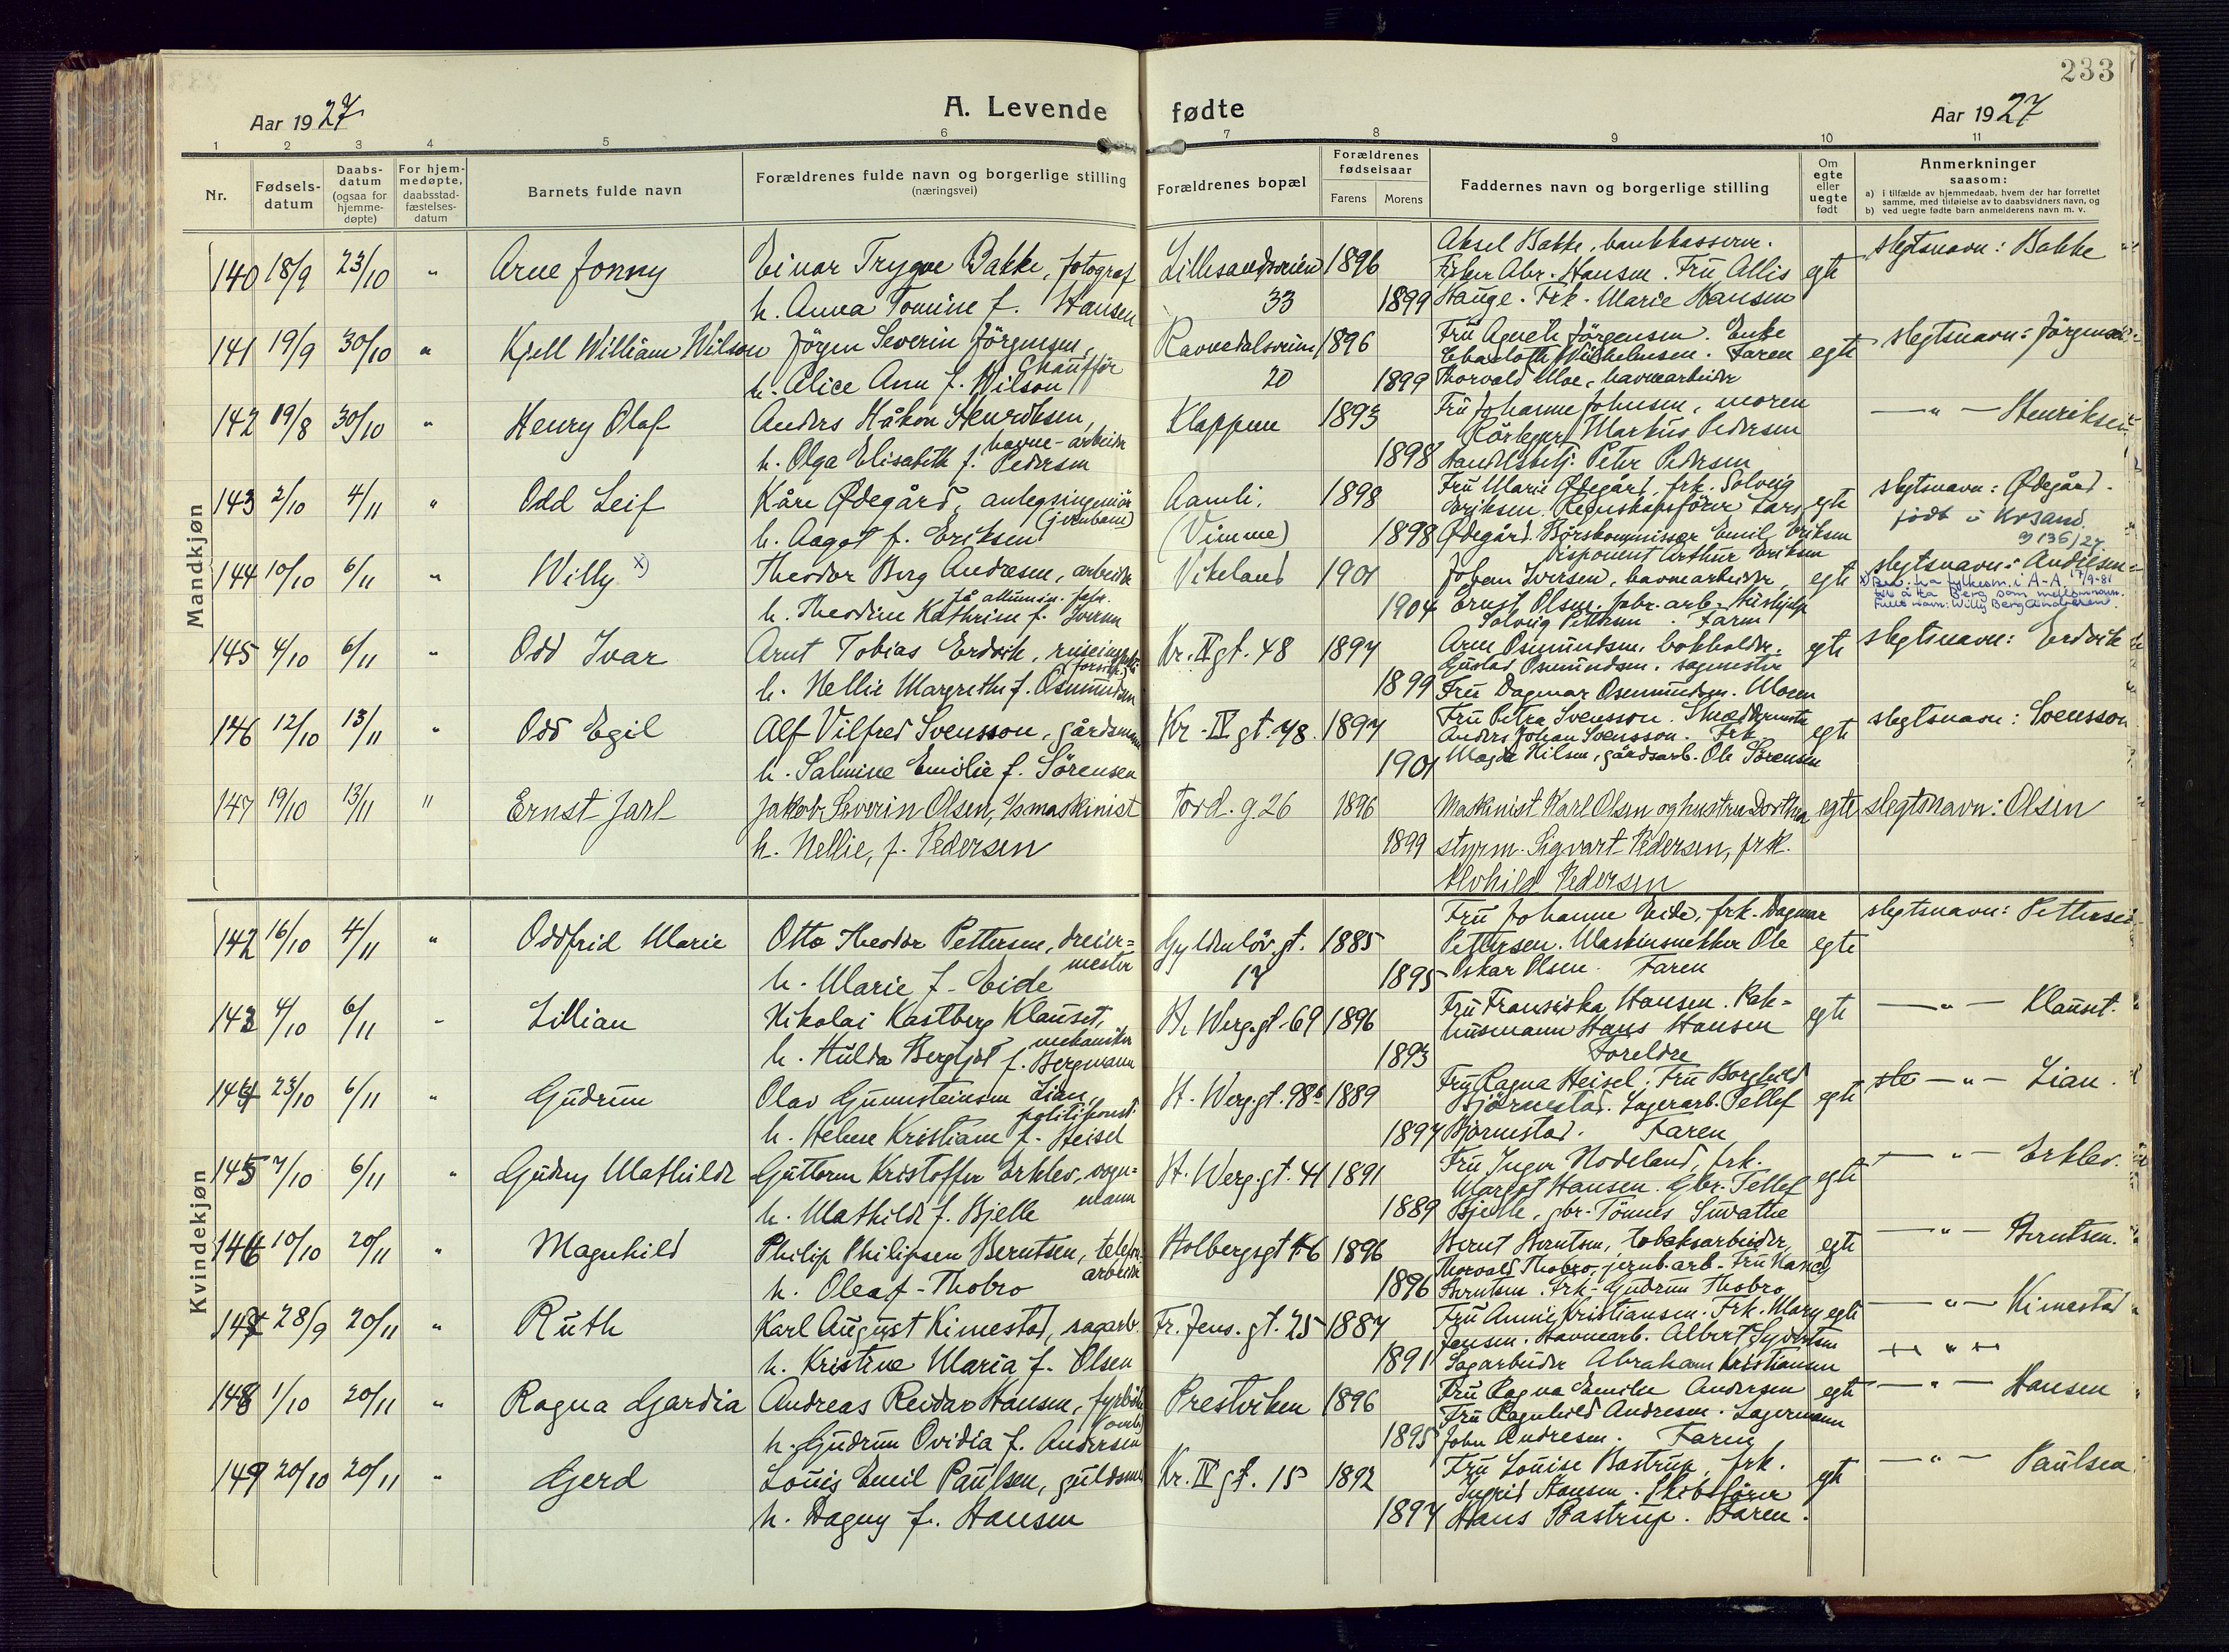 233
Aar 1927
A. Levende fødte
Aar 1927
1 2 3 4 5 6 7 8 9 10 11
Nr.
Fødsels-
datum
Daabs-
datum
(ogsaa for
hjemme-
døpte)
For hjem-
medøpte,
daabsstad-
fæstelses-
datum
Barnets fulde navn
Forældrenes fulde navn og borgerlige stilling
(næringsvei)
Forældrenes bopæl
Forældrenes
fødselsaar
Farens Morens
Faddernes navn og borgerlige stilling
Om
egte
eller
uegte
født
Anmerkninger
saasom:
a) i tilfælde av hjemmedaab, hvem der har forrettet
samme, med tilføielse av to daabsvidners navn, og
b) ved uegte fødte barn anmelderens navn m. v.
Mandkjøn
140 18/9 23/10 " Arne Jonny
Einar Trygve Bakke, fotograf
h. Anna Tomine f. Hansen
Lillesandsveien
33
1896
1899
Aksel Bakke, bankkasserer.
Fisker Abr. Hansen. Fru Allis
Hauge. Frk. Marie Hansen
egte
slegtsnavn: Bakke
141 19/9 30/10 " Kjell William Wilson
Jörgen Severin Jörgensen,
Chaufför
h. Alice Ann f. Wilson
Ravnedalsveien
20
1896
1899
Fru Agnete Jörgensen. Enke
Charlotte Wilhelmsen. Faren
Thorvald Moe, havnearbeider
egte
slegtsnavn: Jörgensen
142 19/8 30/10 " Henry Olaf
Anders Håkon Henriksen,
havne-arbeider
h. Olga Elisabeth f. Pedersen
Kleppene
1893
1898
Fru Johanne Johnsen, moren
Rörlegger Markus Pedersen
Handelsbetj. Peter Pedersen
— " — Henriksen
143 2/10 4/11 " Odd Leif
Kåre Ødegård, anlegsingeniör
(jernbane)
h. Aagot f. Eriksen
Aamli.
(Vimme)
1898
1898
Fru Marie Ødegård, frk. Solveig
Eriksen. Regnskapsförer Lars
Ødegård. Börskommissær Emil Eriksen
Disponent Arthur Eriksen
egte
slegtsnavn: Ødegård.
født i Krsand.
144 10/10 6/11 " Willy x)
Theodor Berg Andresen, arbeider
på allumin. fabr.
h. Theodine Kathrine f. Iversen
Vikeland
1901
1904
Johan Iversen, havnearbeider,
Ernst Olsen, fabr. arb. Hushjelp
Solveig Pettersen. Faren
egte
slegtsnavn: Andresen
x) Bev. fra fylkesm. i A-A. 17/9-81
til å ta Berg som mellomnavn.
Fulle navn: Willy Berg Andresen.
145 4/10 6/11 " Odd Ivar
Arnt Tobias Erdvik, reiseinspektör
forsikr.
h. Nellie Margrethe f. Osmundsen
Kr. IV gt. 48
1897
1899
Arne Osmundsen, bokholder.
Gustav Osmundsen, sagmester
Fru Dagmar Osmundsen. Moren
egte
slegtsnavn: Erdvik
146 12/10 13/11 " Odd Egil
Alf Vilfred Svensson, gårdsmann
h. Salmine Emilie f. Sörensen
Kr. IV gt. 48.
1897
1901
Fru Petra Svensson. Skreddermester
Anders Johan Svensson. Frk
Magda Nilsen, gårdsarb. Ole Sörensen
egte
slegtsnavn: Svensson
147 19/10 13/11 " Ernst Jarl
Jakob Severin Olsen, maskinist
h. Nellie, f. Pedersen
Tord. g 26
1896
1899
Maskinist Karl Olsen og hustru Dorthea
styrm. Sigvart Pedersen, frk.
Alvhild Pedersen
egte
slegtsnavn: Olsen
Kvindekjøn
142 16/10 4/11 " Oddfrid Marie
Otto Theodor Pettersen, dreier=
mester
h. Marie f. Eide
Gyldenlöv.gt.
17
1885
1895
Fru Johanne Eide, frk. Dagmar
Pettersen. Maskinsnekker Ole
Oskar Olsen. Faren
egte
slegtsnavn: Pettersen
143 4/10 6/11 " Lillian
Nikolai Kastberg Klauset,
mekaniker
h. Hulda Bergljot f. Bergmann
H. Werg.gt. 69
1896
1893
Fru Fransiska Hansen. Pak=
husmann Hans Hansen
Foreldre
egte
— " — Klauset.
144 23/10 6/11 " Gudrun
Olav Gunnsteinsen Lian,
politikonst.
h. Helene Kristiane f. Heisel
H. Werg.gt. 98b
1889
1897
Fru Ragna Heisel. Fru Borghild
Bjørnestad. Lagerarb. Tellef
Bjørnestad. Faren
egte
— " — Lian.
145 7/10 6/11 " Gudny Mathilde
Guttorm Kristoffer Erklev, vogn=
mann
h. Mathilde f. Bjelle
H. Werg.gt. 41
1891
1889
Fru Inger Nodeland, frk.
Margot Hansen. Gbr. Tellef
Bjelle, gbr. Tönnes Suvatne
egte
— " — Erklev.
146 10/10 20/11 " Magnhild
Philip Philipsen Berntsen, telefon-
arbeider
h. Olea f. Thobro
Holbergsgt 6
1896
1896
Bernt Berntsen, tobaksarbeider,
Thorvald Thobro, jernb.arb. Fru Nancy
Berntsen. Frk. Gudrun Thobro
egte
— " — Berntsen.
147 28/9 20/11 " Ruth
Karl August Kimestad, sagarb.
h. Kristine Maria f. Olsen
Fr. Jens. gt. 25
1887
1891
Fru Annie Kristiansen. Frk. Mary
Jensen. Havnearb. Albert Syvertsen
Sagarbeider Abraham Kristiansen
egte
— " — Kimestad
148 1/10 20/11 " Ragna Gardia
Andreas Reidar Hansen, fyrböter
h. Gudrun Ovidia f. Andersen
Prestviken
1896
1895
Fru Ragna Emilie Andersen
Fru Ragnhild Andresen. Lagermann
John Andresen. Faren
egte
— " — Hansen
149 20/10 20/11 " Gerd
Louis Emil Paulsen, guldsmed
h. Dagny f. Hansen
Kr. IV gt. 15
1892
1897
Fru Louise Bastrup, frk.
Ingrid Hansen. Skibsförer
Hans Bastrup. Faren.
egte
— " — Paulsen